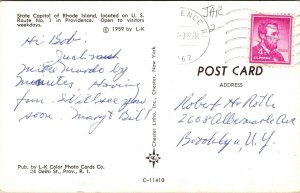 State Capitol of Rhode Island, located on U. S.
Route No. 1 in Providence. Open to visitors
weekdays.
© 1959 by L-K
Hi Bob,
Just
by
minutes. Having
fun. Will see you
soon. Mary & Bill
Pub. by L-K Color Photo Cards Co.
24 Delph St., Prov., R. I.
Chester Litho, Inc., Chester, N. Y.
C-11410
JAN
2
POST CARD
ADDRESS
Robert H. Roth
2608 Albemarle Ave
Brooklyn, N.Y.